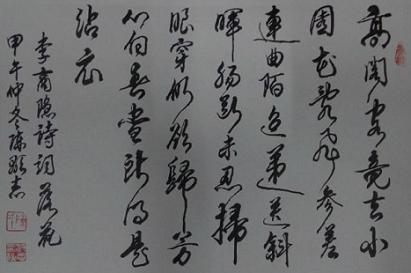 高阁客竟去小
园花乱飞参差
连曲陌迢递送斜
晖肠断未忍扫
眼穿仍欲归芳
心向春尽所得是
沾衣
李商隐詩词落花
甲午仲冬陈颢志